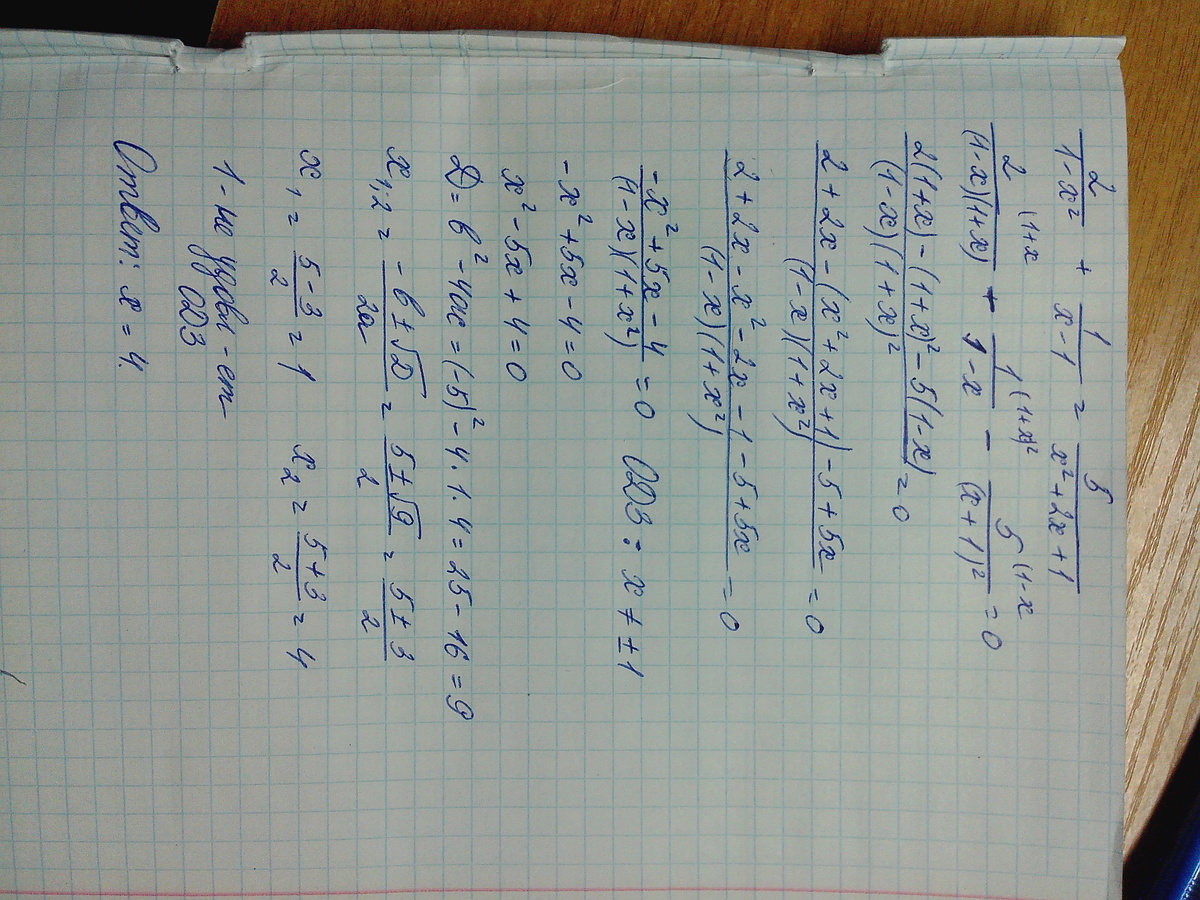 2/(1-x²) + 1/(x-1) = 5/(x²+2x+1)
2(1+x/((1-x)(1+x)) + 1(1+x)²/(1-x) - 5(1-x/(x+1)² = 0
(2(1+x)-(1+x)²-5(1-x))/((1-x)(1+x)²) = 0
(2+2x-(x²+2x+1)-5+5x)/((1-x)(1+x²)) = 0
(2+2x-x²-2x-1-5+5x)/((1-x)(1+x²)) = 0
(-x²+5x-4)/((1-x)(1+x²)) = 0 ОДЗ: x ≠ ±1
-x²+5x-4=0
x²-5x+4=0
D = b²-4ac = (-5)²-4·1·4 = 25-16 = 9
x₁,₂ = (-b±√D)/2a = (5±√9)/2 = (5±3)/2
x₁ = (5-3)/2 = 1 x₂ = (5+3)/2 = 4
1-не удовл-ет
ОДЗ
Ответ: x=4.